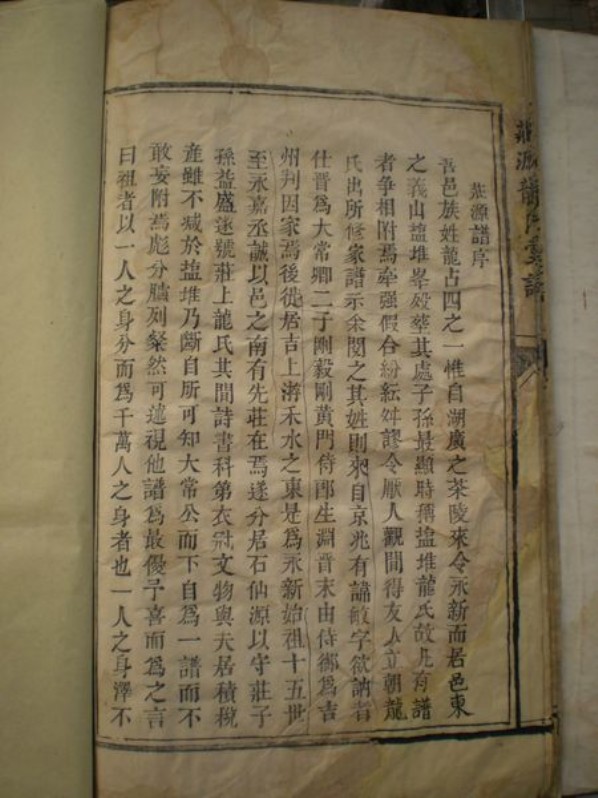 莊源譜序
吾邑族姓龍占四之一惟自湖廣之茶陵來令永新而居邑東
之義山塩堆峯殿華其處子孫最顯時稱塩堆龍氏故凡有譜
者争相附焉牽强假合紛紜舛謬令厭人觀聞得友人立朝龍
氏出所修家譜示余閱之其姓則來自京兆有諱敏字欲訥者
仕晋爲大常卿二子剛毅剛黄門侍郎生淵晋末由侍御爲吉
州判因家焉後徙居吉上游禾水之東是爲永新始祖十五世
至永嘉丞誠以邑之南有先莊在焉遂分居石仙源以守莊子
孫益盛遂號莊上龍氏其間詩書科第衣冠文物與夫居積稅
產雖不减於塩堆乃斷自所可知大常公而下自爲一譜而不
敢妄附焉彪分臚列粲然可𨗿視他譜爲最優予喜而爲之言
曰祖者以一人之身分而爲千萬人之身者也一人之身澤不
莊源龍氏
譜